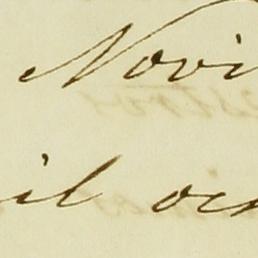 Novi
il oc